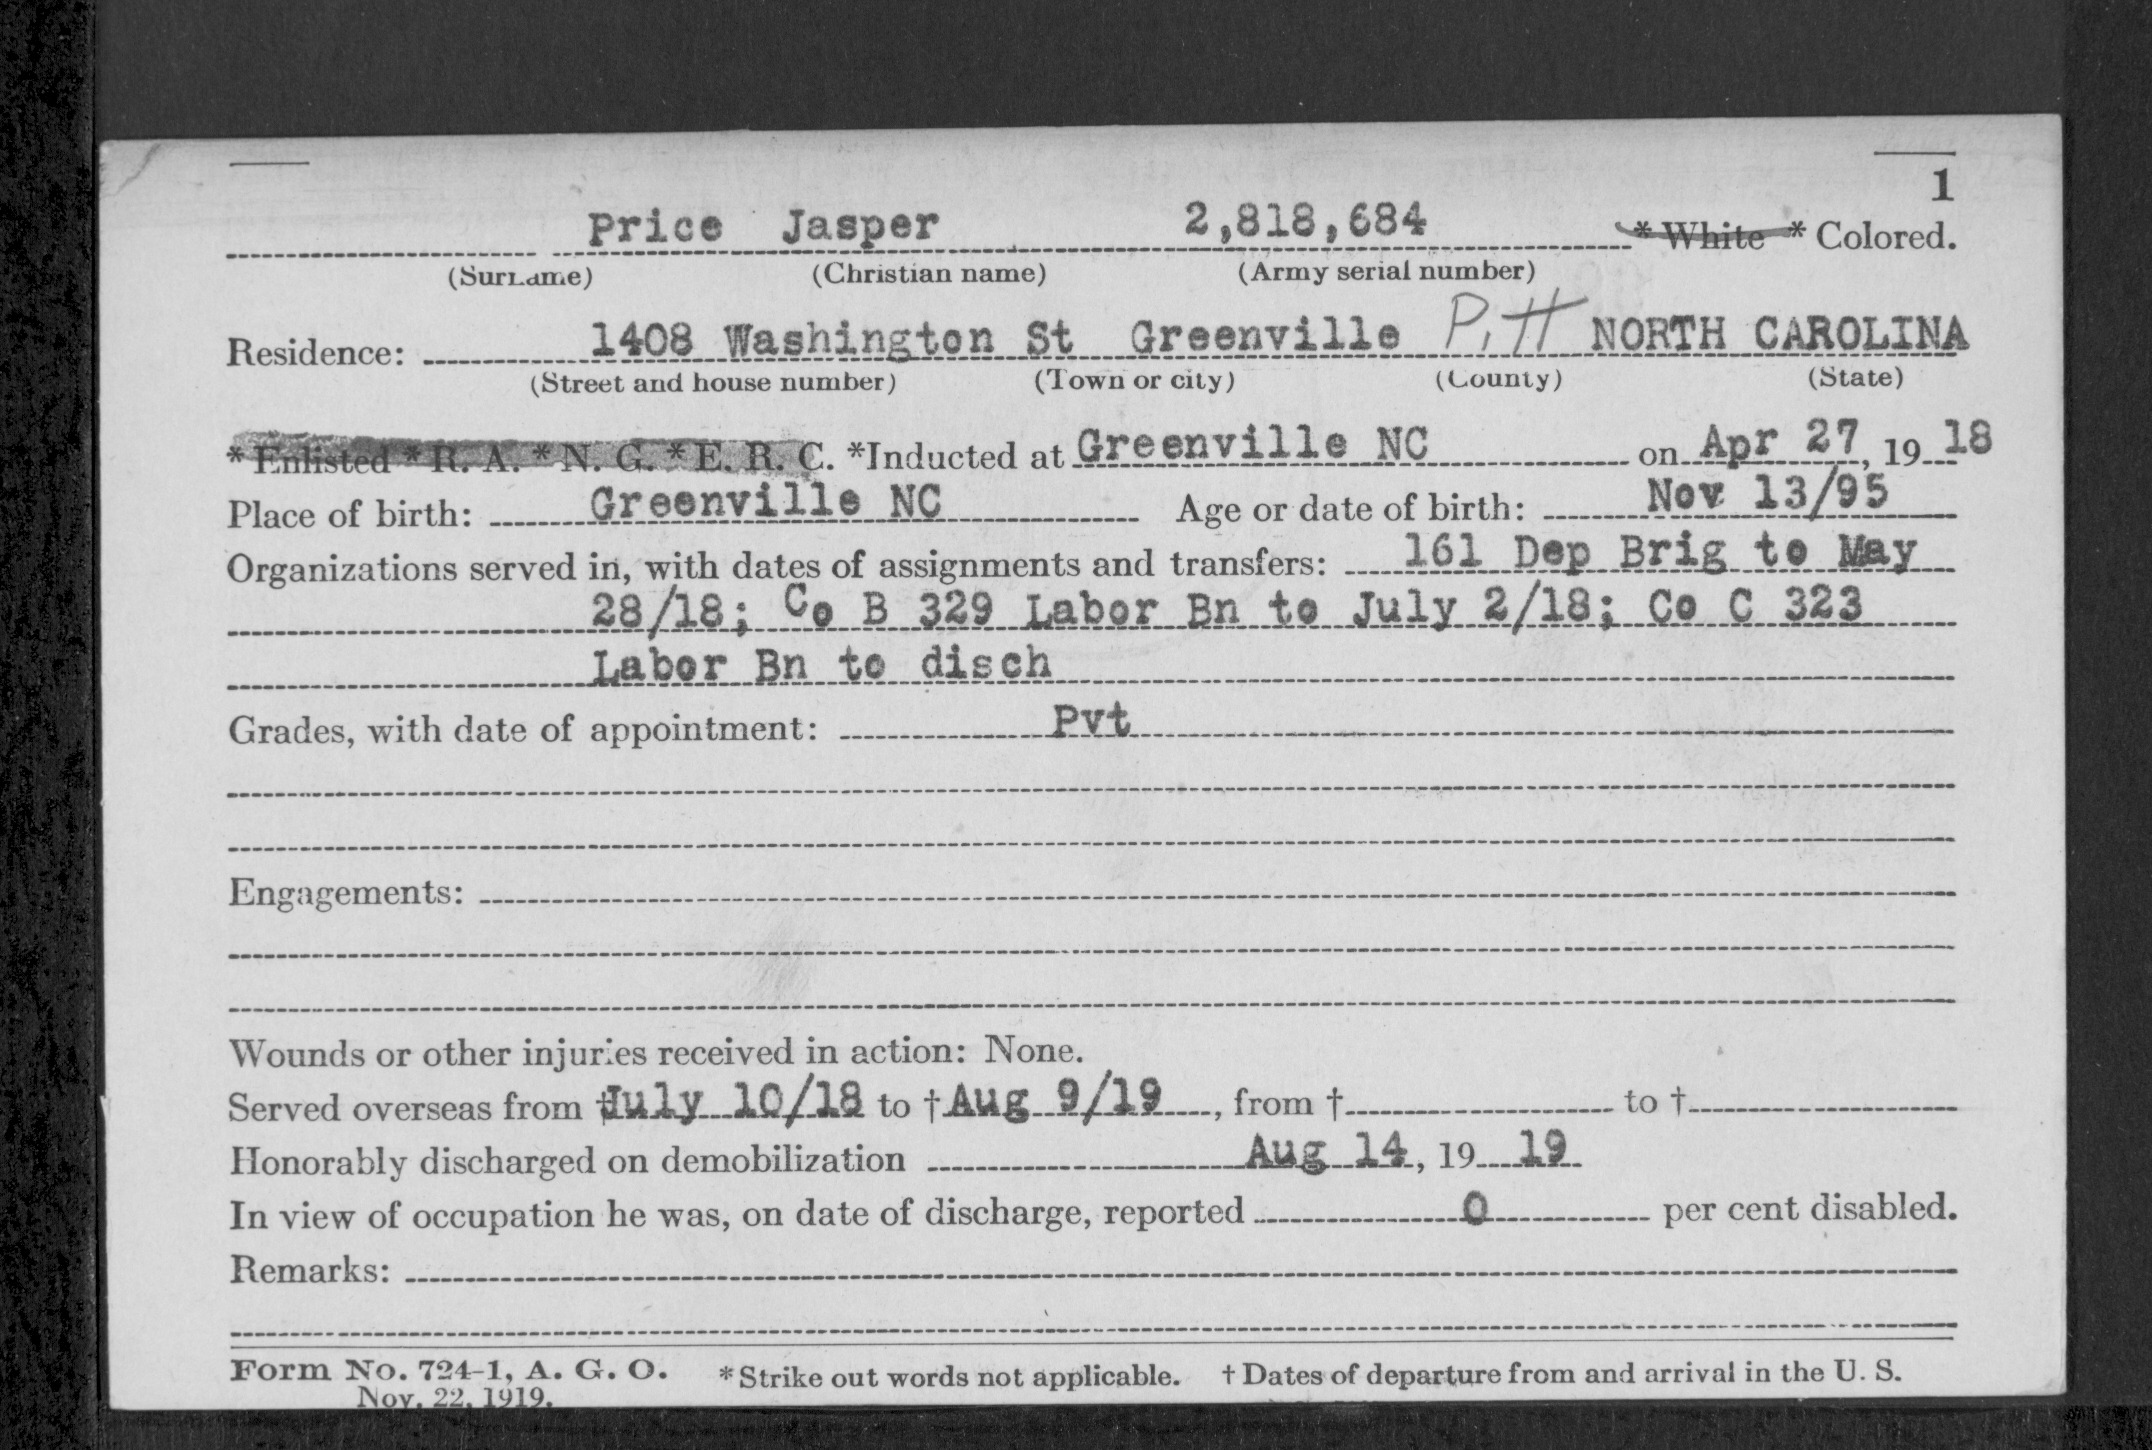 1
Price Jasper 2,818,684 * White * Colored.
(Surname) (Christian name) (Army serial number)
Residence: 1408 Washington St Greenville Pitt NORTH CAROLINA
(Street and house number) (Town or city) (County) (State)
* Enlisted * R. A. * N. G. * E. R. C. *Inducted at Greenville NC on Apr 27, 19 18
Place of birth: Greenville NC Age or date of birth: Nov 13/95
Organizations served in, with dates of assignments and transfers: 161 Dep Brig to May
28/18; Co B 329 Labor Bn to July 2/18; Co C 323
Labor Bn to disch
Grades, with date of appointment: Pvt
Engagements:
Wounds or other injuries received in action: None.
Served overseas from † July 10/18 to † Aug 9/19, from † to †
Honorably discharged on demobilization Aug 14, 19 19
In view of occupation he was, on date of discharge, reported 0 per cent disabled.
Remarks:
Form No. 724-1, A. G. O. * Strike out words not applicable. † Dates of departure from and arrival in the U. S.
Nov. 22, 1919.